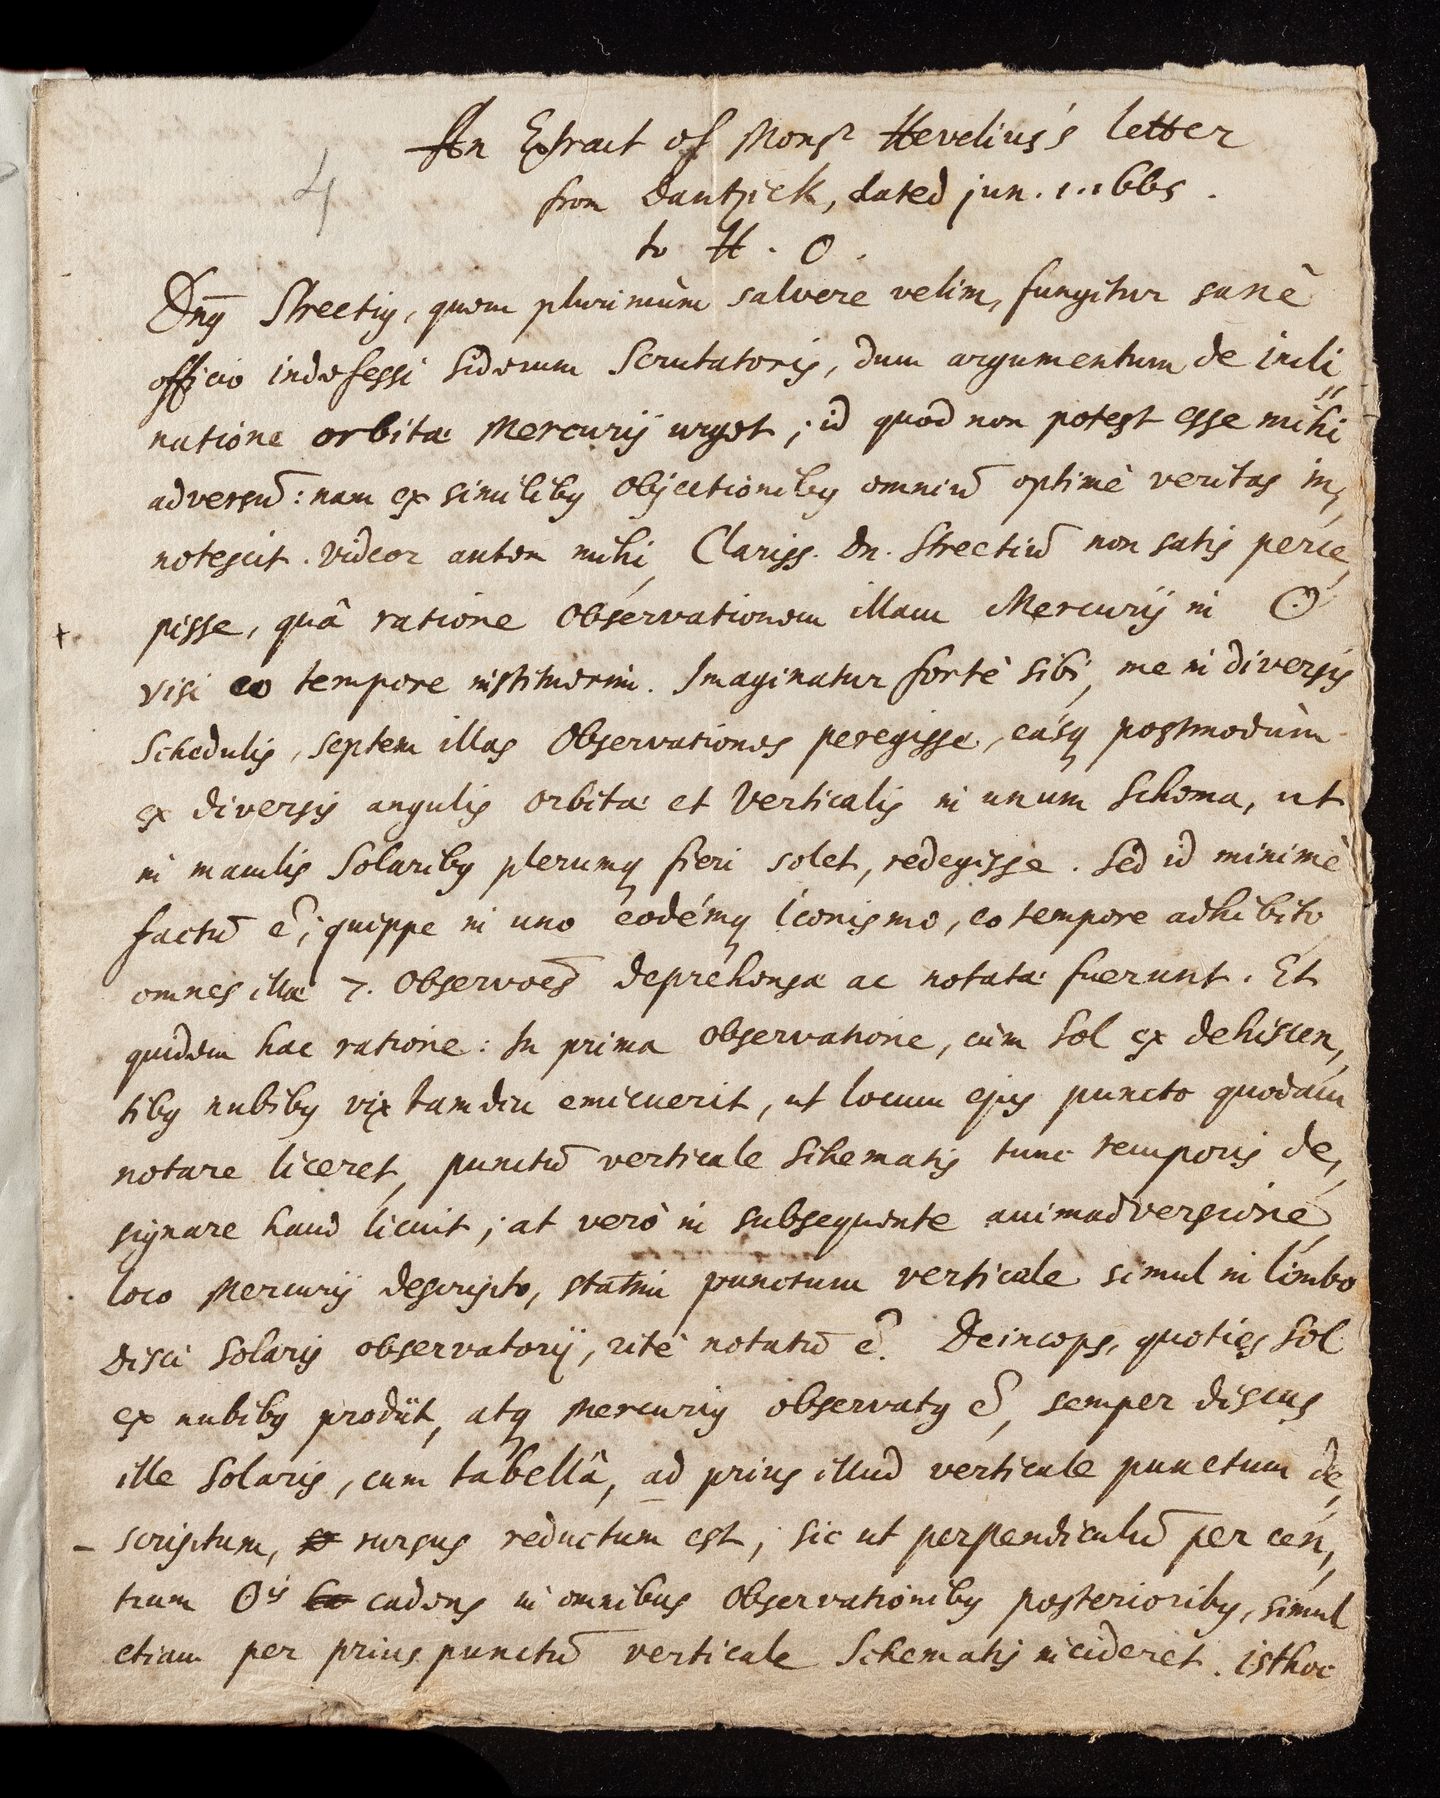 An Extract of Monsr Hevelius's letter
4
from Dantzick, dated jun. 1. 1665.
to H. O.
Dnq Streetiq, quem plurimùm salvere velim, fungitur sanè
officio indefessi siderum Scrutatoris, dum argumentum de incli„
natione orbitæ Mercurij urget; id quod non potest esse mihi
adversū: nam ex similibq objectionibq omniū optimè veritas in„
notescit. Videor autem mihi, Clariss. Dn. Streetiū non satis perce„
pisse, quâ ratione Observationem illam Mercurij in ☉
visi eo tempore instituerim. Imaginatur fortè sibi, me in diversis
Schedulis, septem illas Observationes peregisse, eásq postmodùm
ex diversis angulis orbitæ et Verticalis in unum Schema, ut
in maculis Solaribq plerumq fieri solet, redegisse. Sed id minimè
factū ē; quippe in uno eodémq Iconismo, eo tempore adhibito
omnes illæ 7. Observoēs deprehensæ ac notatæ fuerunt. Et
quidem hac ratione: In prima Observatione, cùm Sol ex dehiscen„
tibq nubibq vix tamdiu emicuerit, ut locum ejus puncto quodam
notare liceret, punctū verticale Schematis tunc temporis de„
signare haud licuit; at verò in subsequente animadversione,
loco Mercurij descripto, statim punctum verticale simul in limbo
disci Solaris observatorij, ritè notatū ē. Deinceps, quoties Sol
ex nubibq prodiit, atq Mercuriq observatq ē, semper discus
ille Solaris, cum tabellâ, ad prius illud verticale punctum de„
scriptum, rursus reductum est; sic ut perpendiculū per cen„
trum ☉is cadens in omnibus Observationibq posterioribq, simul
etiam per prius punctū verticale Schematis incideret. isthoc